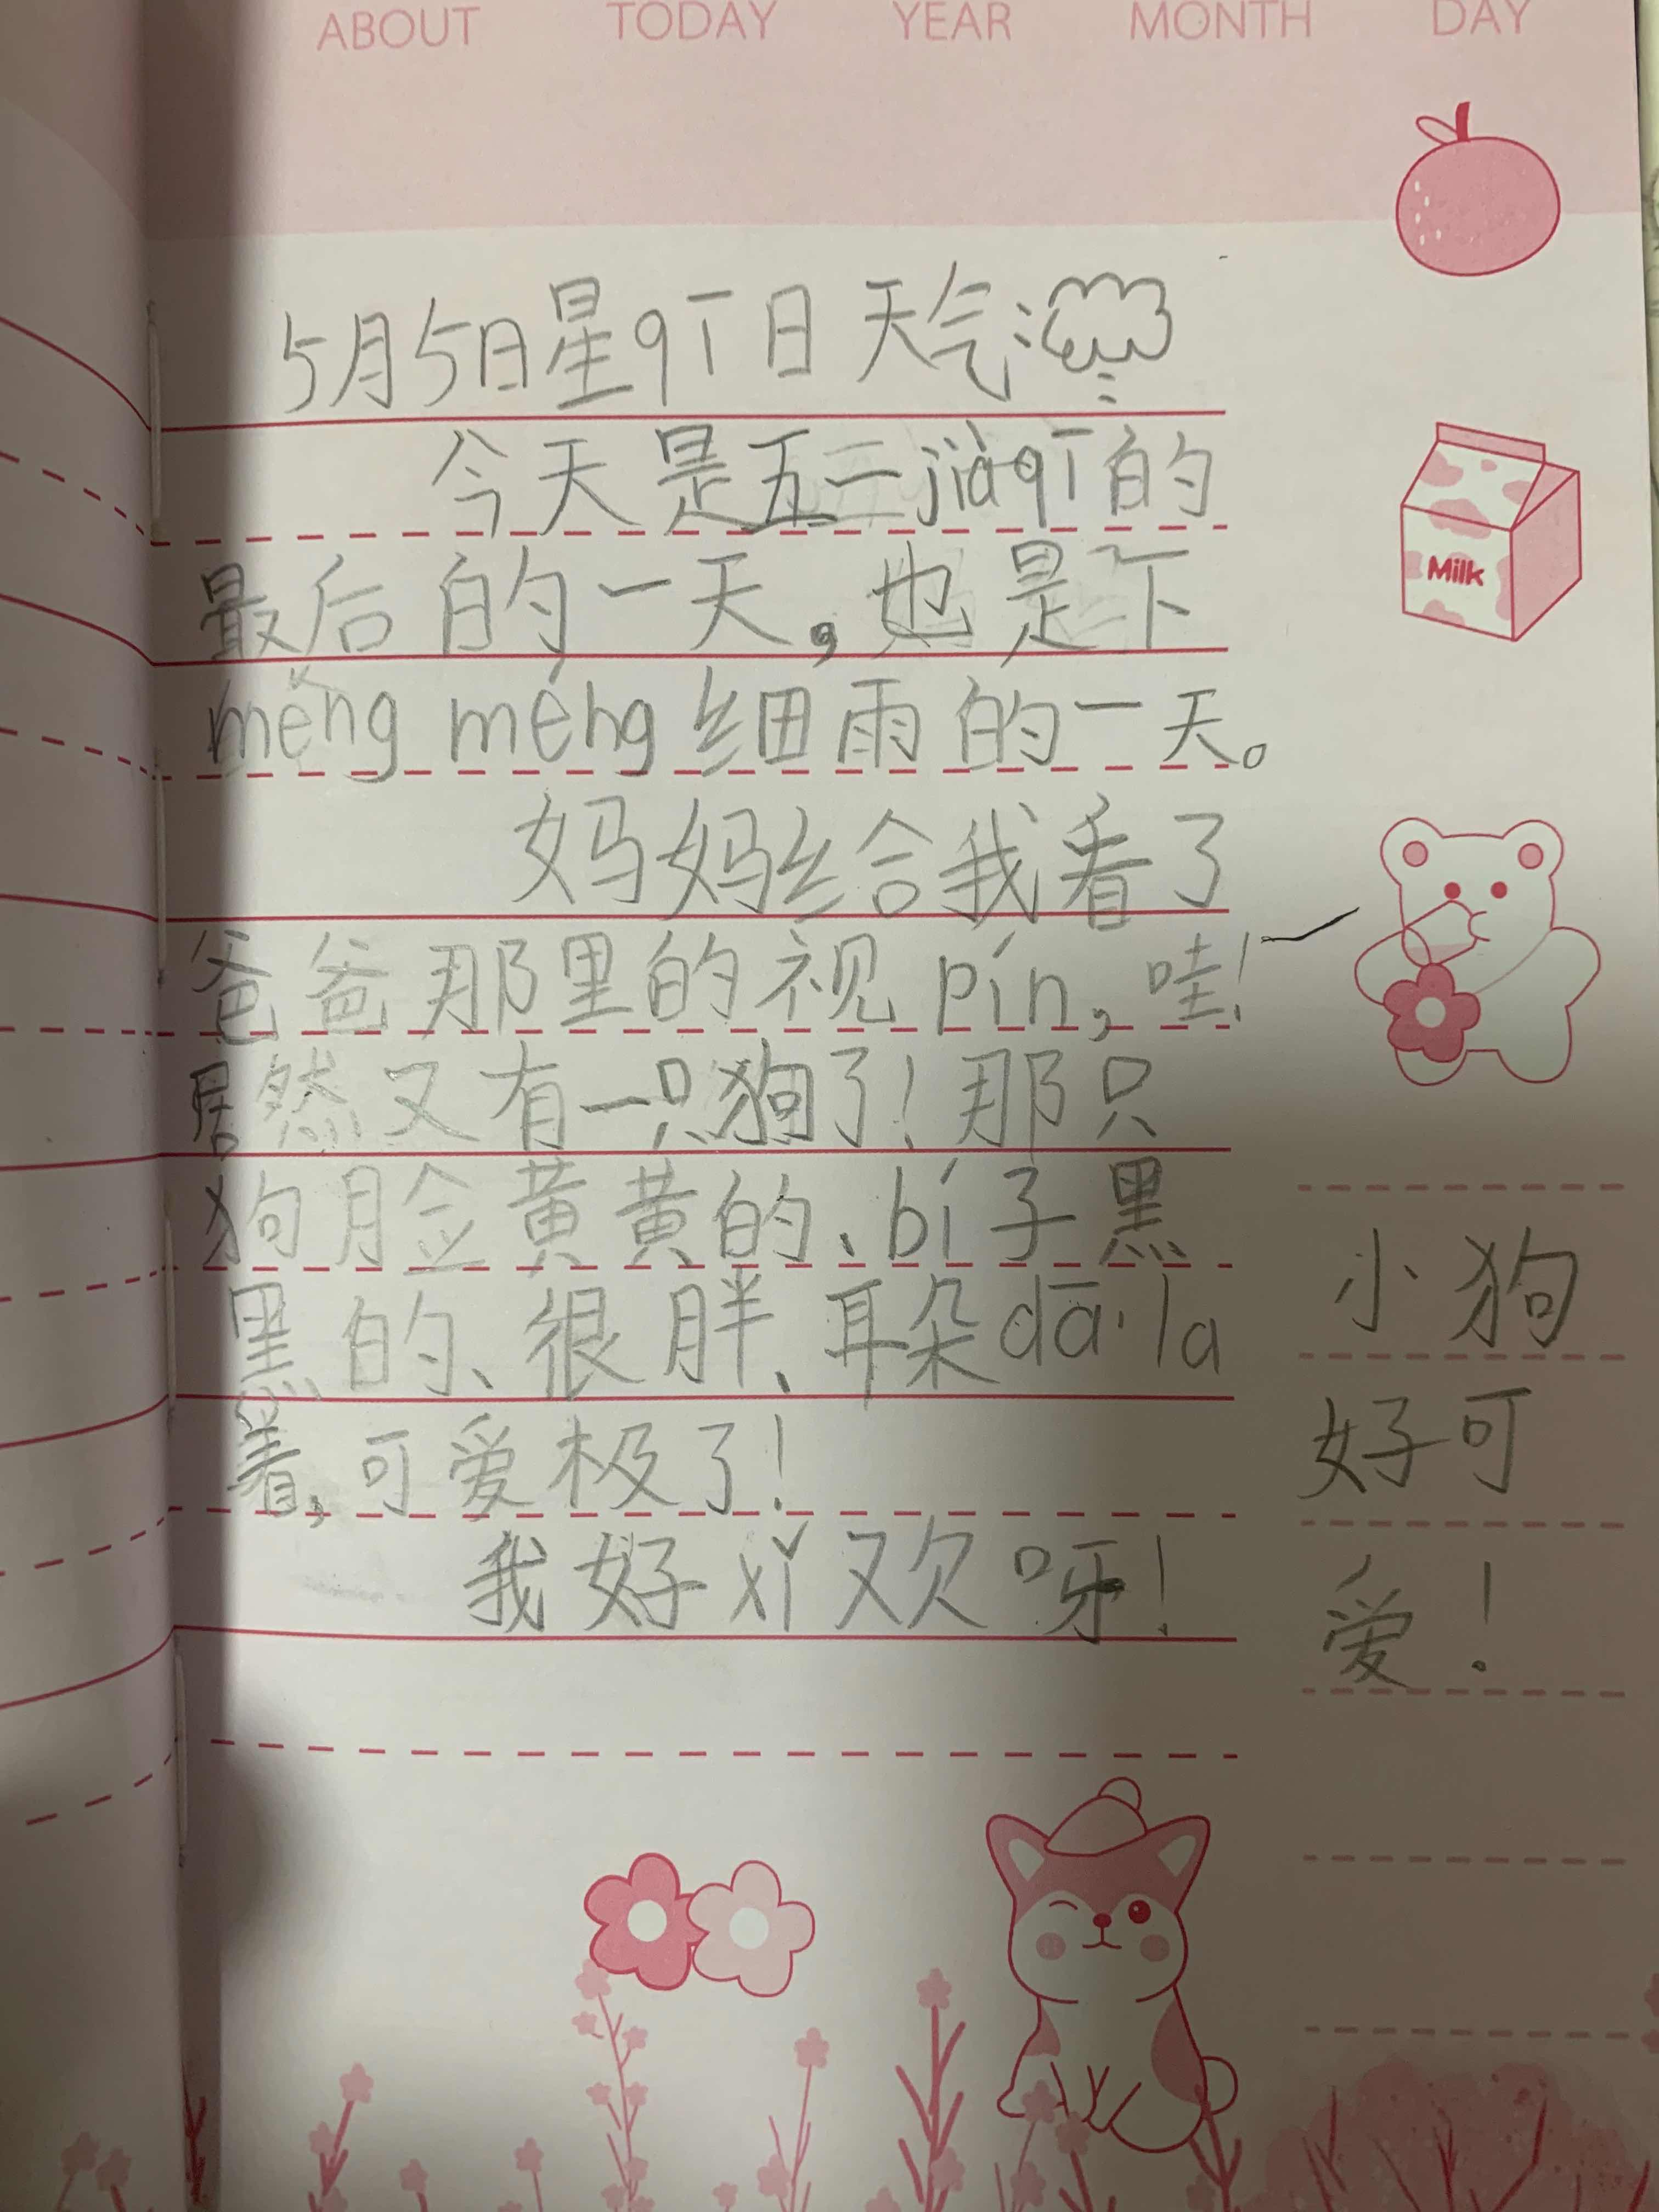 ABOUT TODAY YEAR MONTH DAY
5月5日星qī日 天气:
今天是五一jiàqī的
最后的一天,也是下
Milk
měng méng细雨的一天。
妈妈给我看了
爸爸那里的视pín,哇!
居然又有一只狗了!那只
狗脸黄黄的、bí子黑
黑的、很胖、耳朵dā·la
着,可爱极了!
我好xǐ欢呀!
小狗
好可
爱!